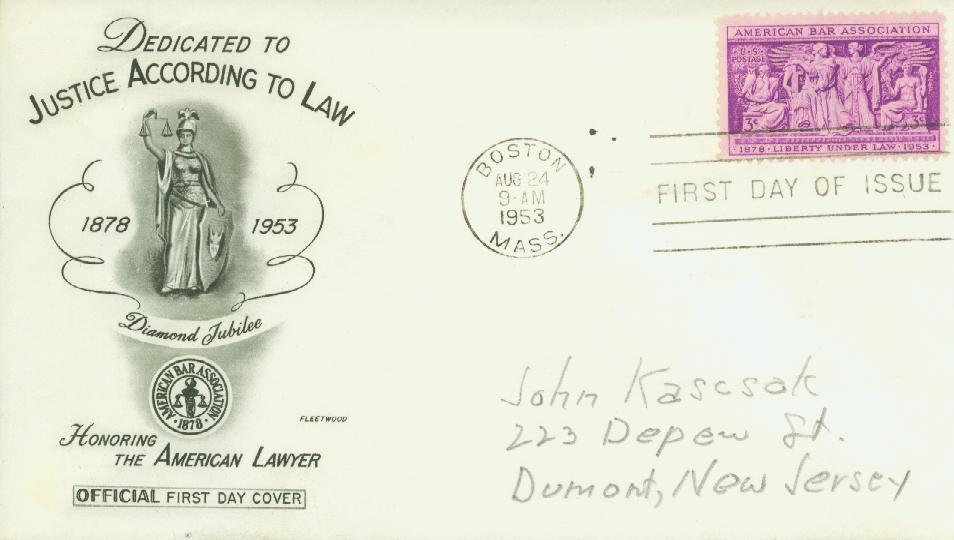 DEDICATED TO
JUSTICE ACCORDING TO LAW
1878 1953
Diamond Jubilee
AMERICAN BAR ASSOCIATION
· 1878 ·
FLEETWOOD
HONORING
THE AMERICAN LAWYER
OFFICIAL FIRST DAY COVER
BOSTON
AUG 24
9-AM
1953
MASS.
AMERICAN BAR ASSOCIATION
U·S·
POSTAGE
3¢ 3¢
·1878·LIBERTY UNDER LAW·1953·
FIRST DAY OF ISSUE
John Kascsak
223 Depew St.
Dumont, New Jersey